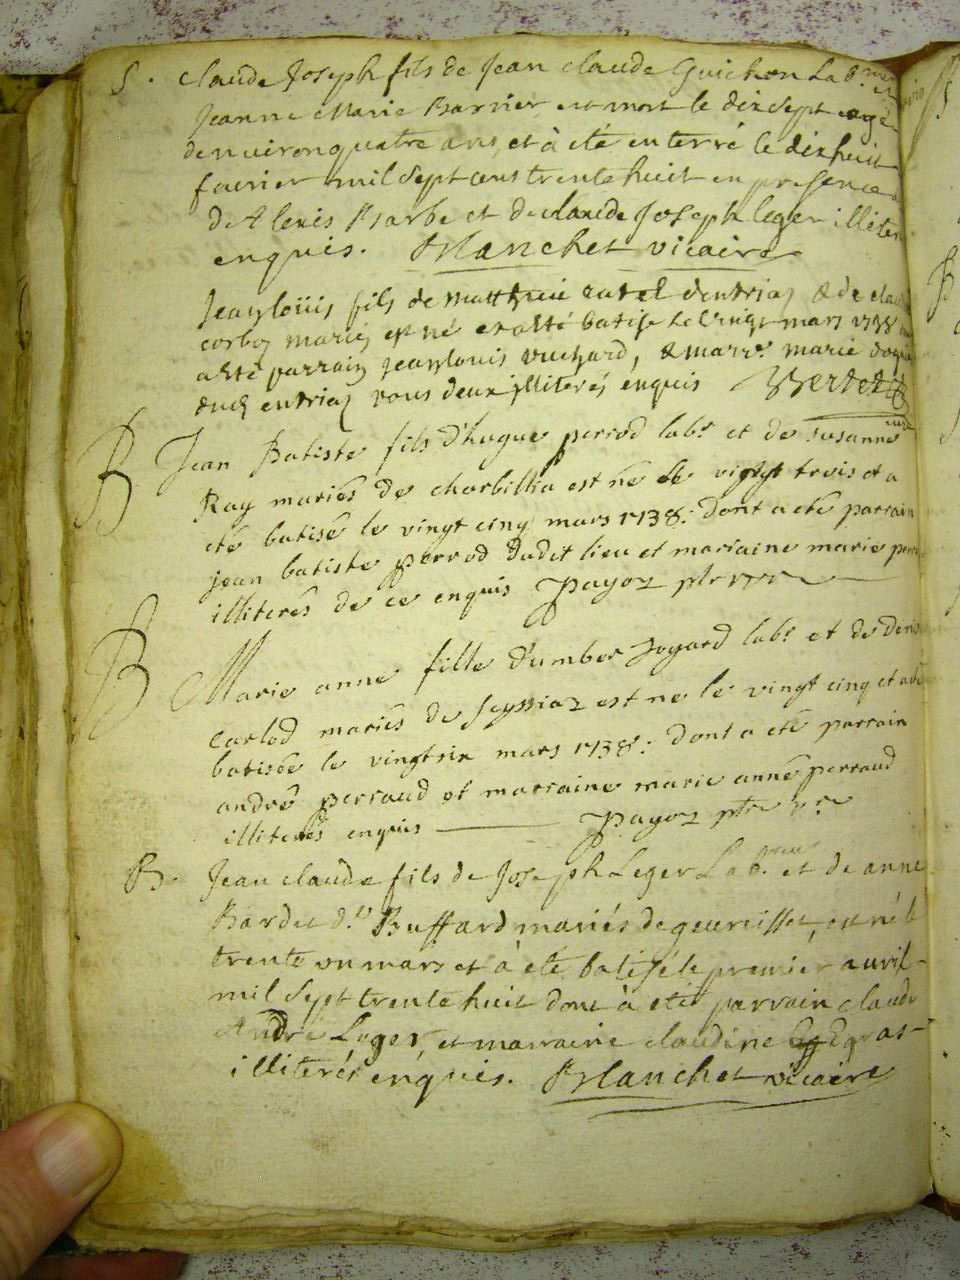 S. Claude Joseph fils de Jean claude Guichon Lab.r et
Jeanne Marie Barrier est mort le dix sept agé
denviron quatre ans, et à eté enterré le dix huit
fevrier mil Sept cens trente huit en presence
de Alexis Barbe et de claude Joseph leger illiter
enquis. Blanchet vicaire
Jean loüis fils de matthieu ravel dentriaz & de
corboz mariés est né et a esté batisé le vingt mars 1738
a esté parrain jean louis vuchard, & marr.e marie
dud entriaz tous deux jlliterés enquis
B Jean Batiste fils d'hugue perrod lab.r et de Susanne
Ray mariés de charbillia est né le vingt trois et a
eté batisé le vingt cinq mars 1738: dont a eté parrain
jean batiste perrod dudit lieu et mariaine marie
illiterés de ce enquis Payoz
B Marie anne fille d'umber Joyard lab.r et de
Carlod mariés de Seyssiaz est ne le vingt cinq et a
batisée le vingt six mars 1738: dont a eté parrain
andré perraud et marraine marie anne perraud
illiterés enquis Payoz
B. Jean claude fils de Joseph Leger Lab.r et de anne
Bardet d.t Buffard mariés de geureisset, est né le
trente un mars et à eté batisé le premier avril
mil Sept trente huit dont à eté parrain claude
André Leger, et marraine claudine
illiterés enquis. Blanchet vicaire